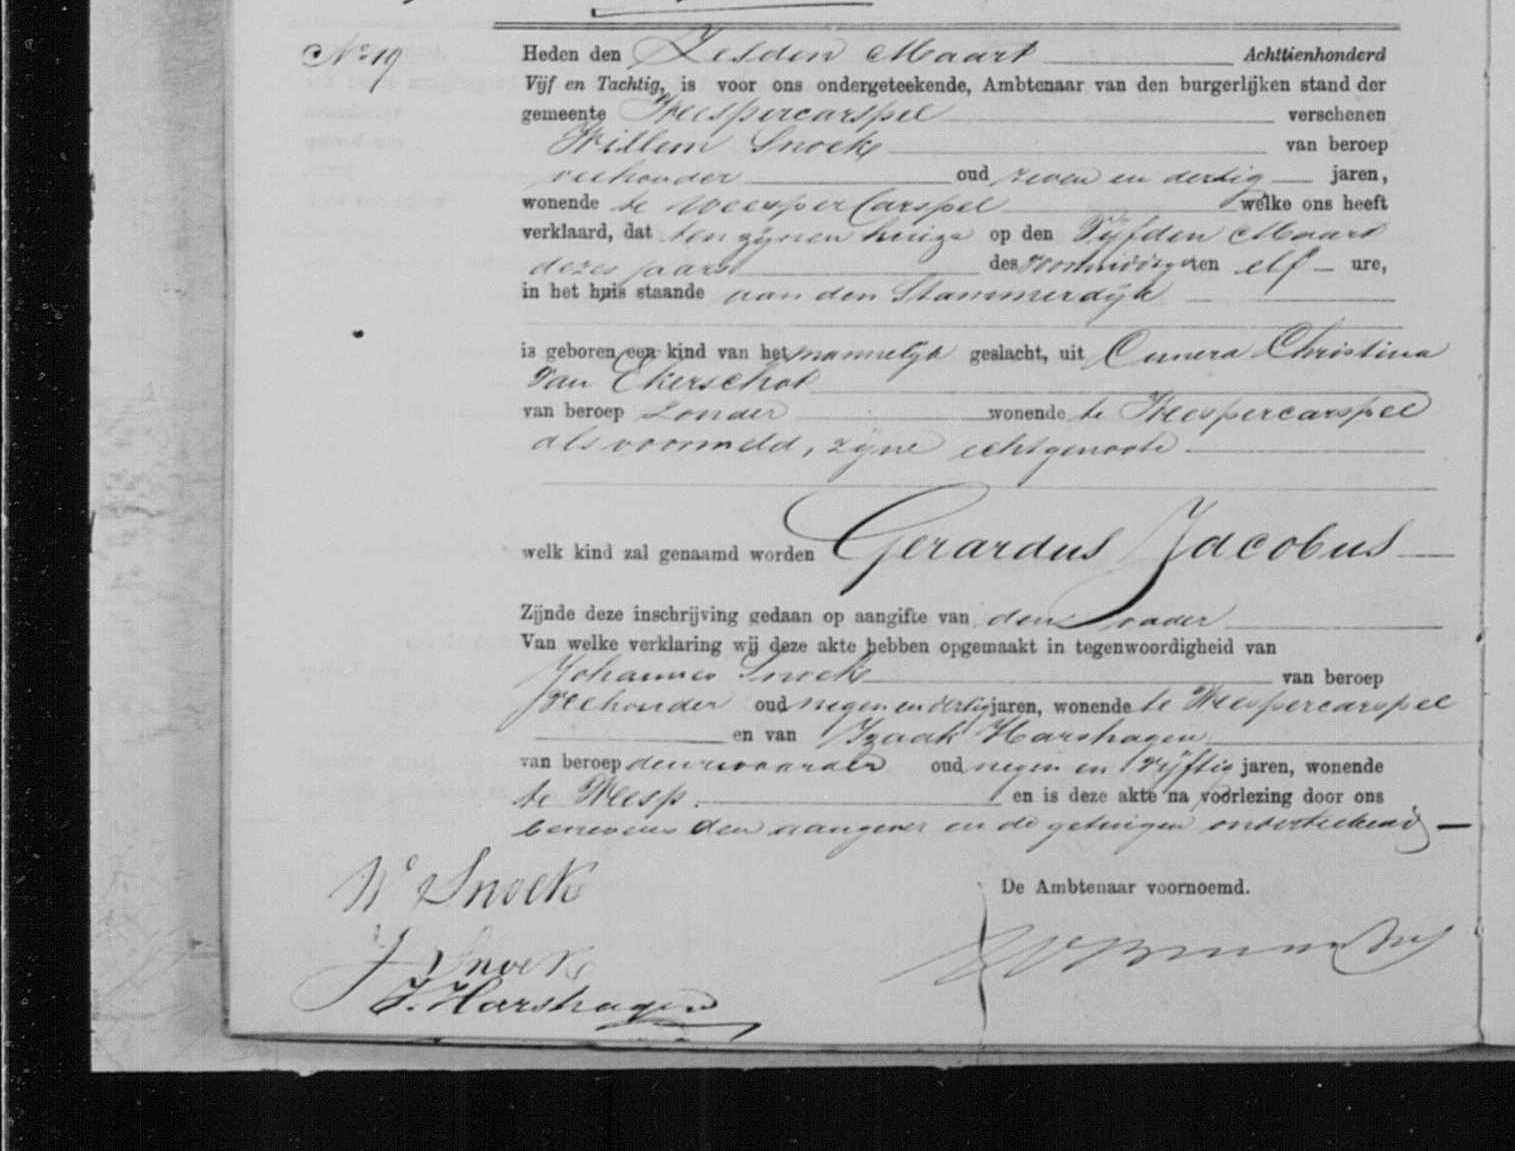 No 19
Heden den Zesden Maart Achttienhonderd
Vijf en Tachtig, is voor ons ondergeteekende, Ambtenaar van den burgerlijken stand der
gemeente Weespercarspel verschenen
Willem Snoek van beroep
veehouder oud zeven en dertig jaren,
wonende te Weespercarspel welke ons heeft
verklaard, dat ten zijnen huize op den Vijfden Maart
dezes jaars des voormiddags ten elf ure,
in het huis staande aan den Stammerdijk
is geboren een kind van het mannelijk geslacht, uit Cunera Christina
van Ekerschot
van beroep zonder wonende te Weespercarspel
als voormeld, zijne echtgenoote
welk kind zal genaamd worden Gerardus Jacobus
Zijnde deze inschrijving gedaan op aangifte van den vader
Van welke verklaring wij deze akte hebben opgemaakt in tegenwoordigheid van
Johannes Snoek van beroep
veehouder oud negen en dertig jaren, wonende te Weespercarspel
en van Izaak Harshagen
van beroep deurwaarder oud negen en vijftig jaren, wonende
te Weesp. en is deze akte na voorlezing door ons
benevens den aangever en de getuigen onderteekend
Wm Snoek
De Ambtenaar voornoemd.
J Snoek
I. Harshagen